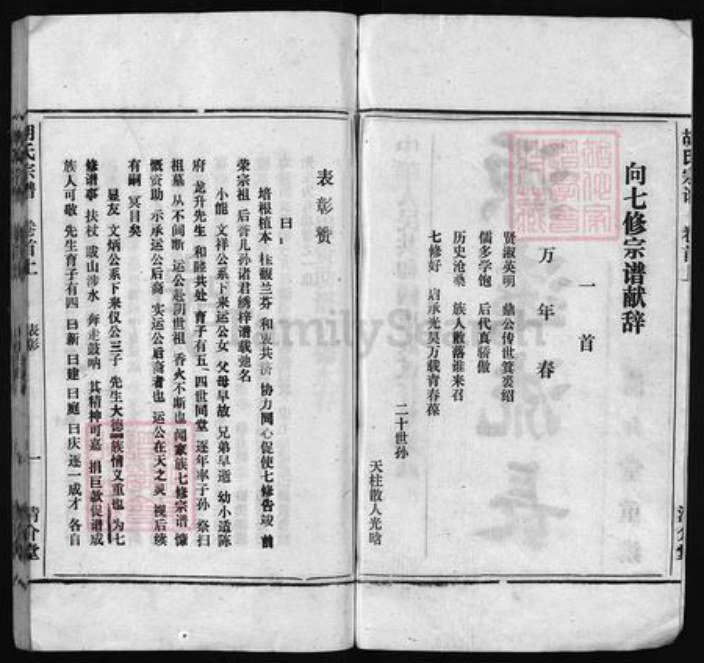 胡氏宗谱
向七修宗谱献辞
万年春 一首
贤淑英明 鼎公传世箕裘绍
儒多学饱 后代真骄傲
历史沧桑 族人散落谁来召
七修好 启承光昊万载青春葆
二十世孙
天柱散人光晗
清介堂
表彰赞
曰:
培根植本 桂馥兰芬 和衷共济 协力同心促使七修告竣 前
荣宗祖 后誉儿孙诸君绣梓谱载弛名
小能 文祥公系下来运公女 父母早故 兄弟早逝 幼小适陈
府 龙升先生 和睦共处 育子有五 四世同堂 逐年率子孙 祭扫
祖墓 从不间断 运公赴阴世祖 香火不断也 闻家族七修宗谱 慷
慨资助 示承运公后裔 实运公后裔者也 运公在天之灵 视后续
有嗣 冥目矣
显友 文炳公系下来仪公三子 先生大德 族情义重也 为七
修谱事 扶杖 跋山涉水 奔走鼓呐 其精神可嘉 捐巨款促谱成
族人可敬 先生育子有四 曰新 曰建 曰庭 曰庆 逐一成才 各自
胡氏宗谱 卷首上 表彰 一 清介堂
FamilySearch